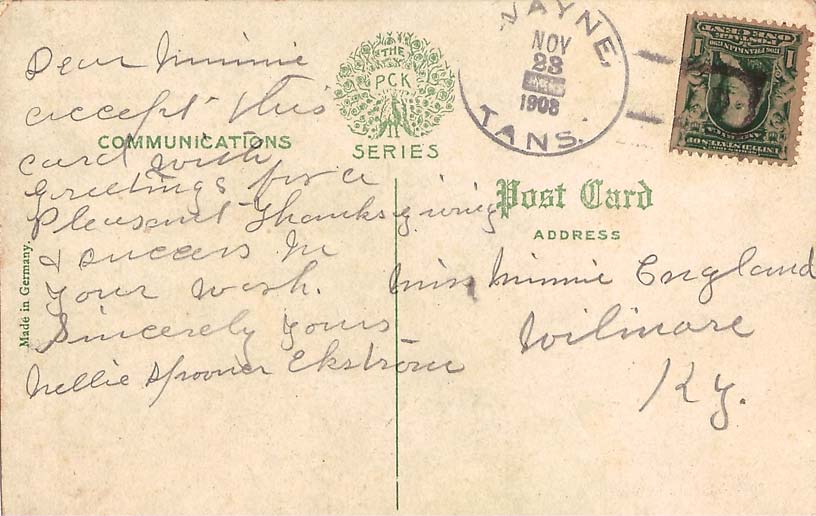 Dear Minnie
accept this
card with
greetings for a
Pleasant Thanksgiving
& success in
your work.
Sincerely yours
Nellie Spooner Ekstrom
COMMUNICATIONS
THE
PCK
SERIES
Made in Germany.
WAYNE,
NOV
23
1908
KANS.
Post Card
ADDRESS
Miss Minnie England
Wilmore
Ky.
1